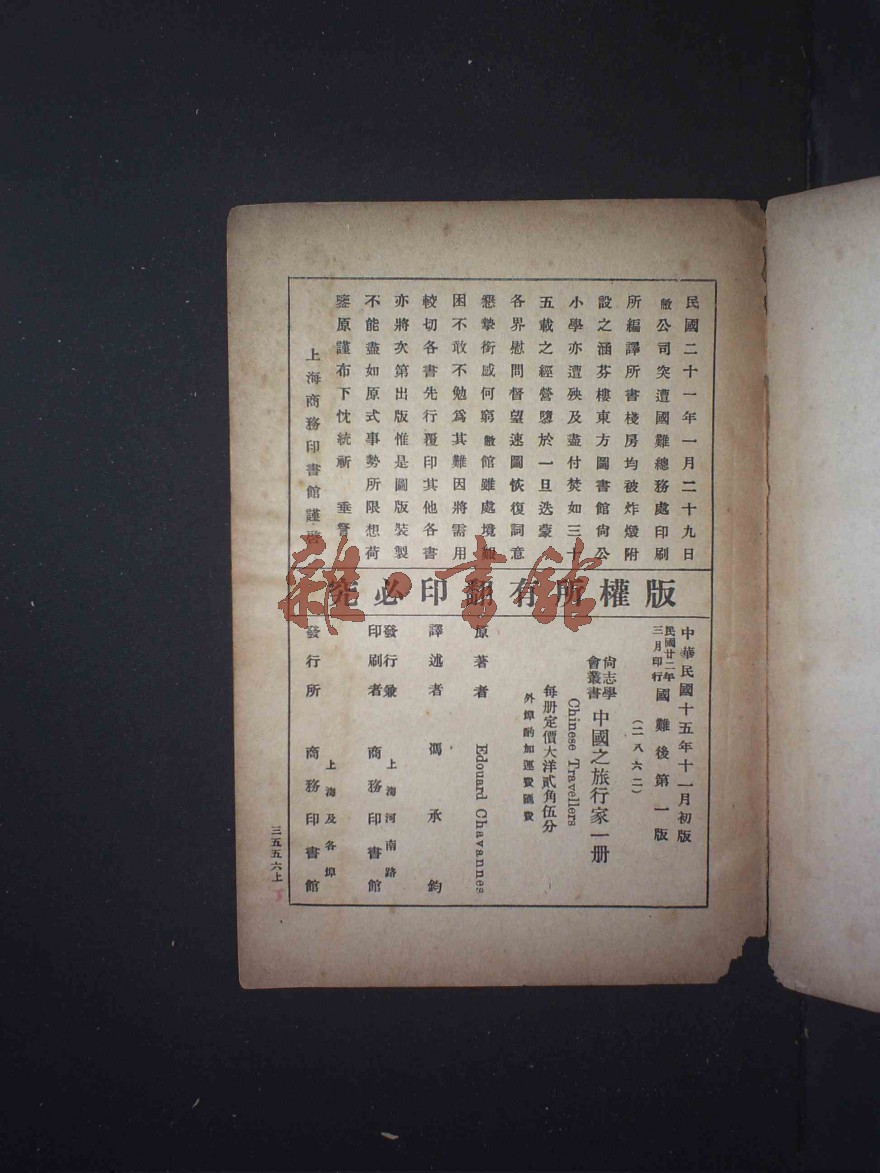 民國二十一年一月二十九日
敝公司突遭國難總務處印刷
所編譯所書棧房均被炸燬附
設之涵芬樓東方圖書館尙公
小學亦遭殃及盡付焚如三十
五載之經營隳於一旦迭蒙
各界慰問督望速圖恢復詞意
懇摯銜感何窮敝館雖處境艱
困不敢不勉爲其難因將需用
較切各書先行覆印其他各書
亦將次第出版惟是圖版裝製
不能盡如原式事勢所限想荷
鑒原謹布下忱統祈 垂詧
上海商務印書館謹啓
版權所有翻印必究
中華民國十五年十一月初版
民國廿二年三月印行 國難後第一版
(二八六二)
尙志學會叢書 中國之旅行家一册
Chinese Travellers
每册定價大洋貳角伍分
外埠酌加運費匯費
原著者 Edouard Chavannes
譯述者 馮承鈞
發行兼印刷者 上海河南路 商務印書館
發行所 上海及各埠 商務印書館
三五五六上
雜·書館